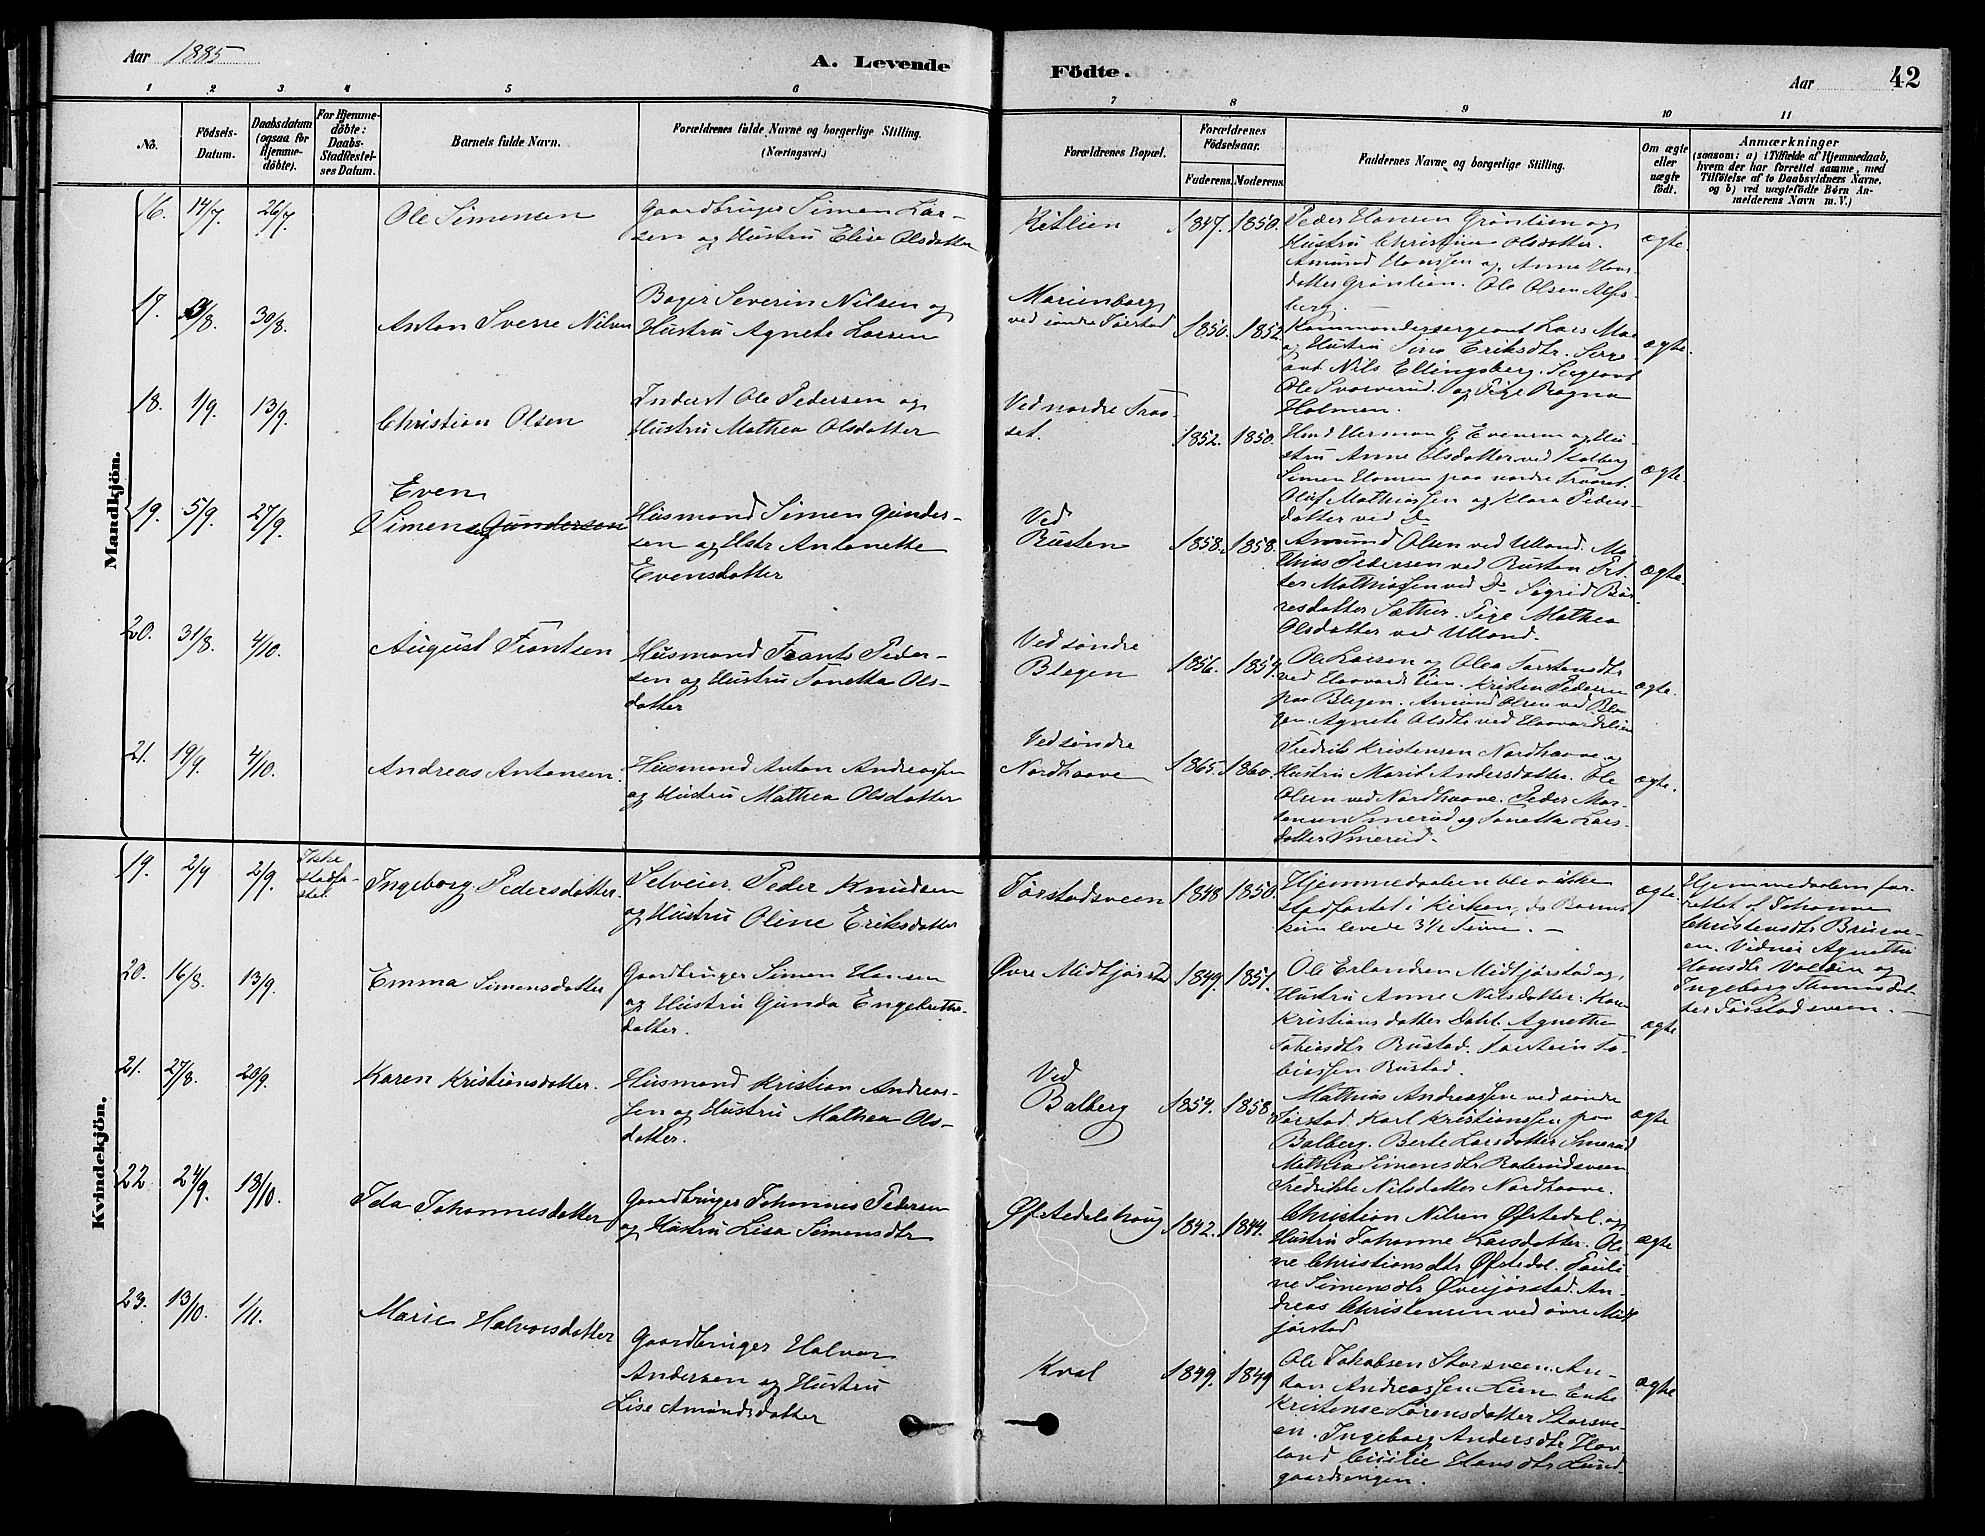 Aar 1885
A. Levende
Födte.
Aar
42
1 2 3 4 5 6 7 8 9 10 11
No.
Födsels-
Datum.
Daabsdatum
(ogsaa for
Hjemme-
döbte).
For Hjemme-
döbte:
Daabs-
Stadfæstel-
ses Datum.
Barnets fulde Navn.
Forældrenes fulde Navne og borgerlige Stilling.
(Næringsvei.)
Forældrenes Bopæl.
Forældrenes
Födselsaar.
Faderens. Moderens.
Faddernes Navne og borgerlige Stilling.
Om ægte
eller
uægte
födt.
Anmærkninger
(saasom: a) i Tilfælde af Hjemmedaab,
hvem der har forrettet samme, med
Tilföielse af to Daabsvidners Navne,
og b) ved uægtefödte Börn An-
melderens Navn m. V.)
Mandkjön.
16. 14/7 26/7
Ole Simensen
Gaardbruger Simen Lar-
sen og Hustru Elise Olsdatter
1847. 1850.
Peder Hansen Grønlien og
Hustru Christine Olsdatter.
Amund Hanssen og Anne Hans-
datter Grønlien. Ole Olsen
berg.
ægte
17. 30/8.
Anton Sverre Nilsen
Bager Severin Nilsen og
Hustru Agnete Larsen
Marienborg
ved søndre Jørstad
1850. 1852.
Kommandersergeant Lars Moe
og Hustru Eriksdtr. Serge-
ant Nils Ellingsberg. Sergeant
Ole og Pige Ragna
Holmen.
ægte.
18. 1/9. 13/9.
Christian Olsen
Inderst Ole Pedersen og
Hustru Mathea Olsdatter
Ved nordre
set.
1852. 1850.
Herman G. Evensen og Hu-
stru Anne Olsdatter ved
Simen Hansen paa nordre
Oluf Mathiassen og Klara Peders-
datter ved Do
ægte.
19. 5/9. 27/9.
Even
Simensen Gundersen
Husmand Simen Gunder-
sen og Hstr Antonette
Evensdatter
Ved
Rusten
1858. 1858.
Amund Olsen ved Ulland. Ma-
thias Pedersen ved Rusten
Mathiassen ved Do Sigrid Bør-
resdatter Sæther. Pige Mathea
Olsdatter ved Ulland.
ægte.
20. 31/8. 4/10.
August Frantsen
Husmand Frants Peder-
sen og Hustru Tonetta Ols-
datter
Ved søndre
Blegen
1856. 1857.
Ole Larsen og Olea Torstensdtr
ved Haavardslien. Kristen Pedersen
paa Blegen. Amund Olsen ved Ble-
gen. Agnete Olsdtr ved Haavardslien
ægte.
21. 19/9. 4/10.
Andreas Antonsen.
Husmand Anton Andreassen
og Hustru Mathea Olsdatter
Ved søndre
Nordhaave
1865. 1860.
Fredrik Kristensen Nordhaave og
Hustru Marit Andersdatter. Ole
Olsen ved Nordhaave. Peder Mor-
tensen Smerud og Tonetta Lars-
datter Smerud.
ægte.
Kvindekjön.
19. 2/9 2/9.
Ikke
stadfæ-
stet.
Ingeborg Pedersdatter.
Selveier Peder Knudsen
og Hustru Oline Eriksdatter
Jørstadsveen
1848 1850.
Hjemmedaaben blev ikke
stadfæstet i Kirken, da Barnet
kun levede 3½ Time. —
ægte.
Hjemmedaaben for-
rettet af Johanne
Christensdtr Brusve-
en. Vidner Agnethe
Hansdtr Volden og
Ingeborg Thomasdat-
ter Jørstadsveen. —
20. 16/8. 13/9.
Emma Simensdatter
Gaardbruger Simen Hansen
og Hustru Gunda Engebrets-
datter.
Øvre Midtjørstad
1849. 1851.
Ole Erlandsen Midtjørstad og
Hustru Anne Nilsdatter. Karen
Kristiansdatter Dahl. Agnethe
Tobiasdtr Rustad. Torstein To-
biassen Rustad.
ægte
21. 27/8. 20/9.
Karen Kristiansdatter.
Husmand Kristian Andreas-
sen og Hustru Mathea Ols-
datter.
Ved
Balberg
1854. 1858.
Mathias Andreassen ved søndre
Jørstad. Karl Kristianssen paa
Balberg. Berte Larsdatter Smerud
Mathea Simensdtr
Fredrikke Nilsdatter Nordhaave.
ægte
22 24/9. 18/10.
Ida Johannesdatter
Gaardbruger Johannes Pedersen
og Hustru Lisa Simensdtr
Øfstedalshaug
1842. 1844.
Christian Nilsen Øfstedal og
Hustru Johanne Larsdatter. Oli-
ne Christiansdtr Øfstedal. Pauli-
ne Simensdtr Øverjørstad. An-
dreas Christensen ved øvre Midt-
jørstad
ægte
23. 13/10. 1/11.
Marie Halvorsdatter
Gaardbruger Halvor
Andersen og Hustru
Lise Amundsdatter
Kval
1849. 1849
Ole Jakobsen Storsveen. An-
ton Andreassen Lien Enke
Kristense Sørensdatter Storsve-
en. Ingeborg Andersdtr Hov-
land Cicilie Hansdtr Lund-
gaardsengen.
ægte